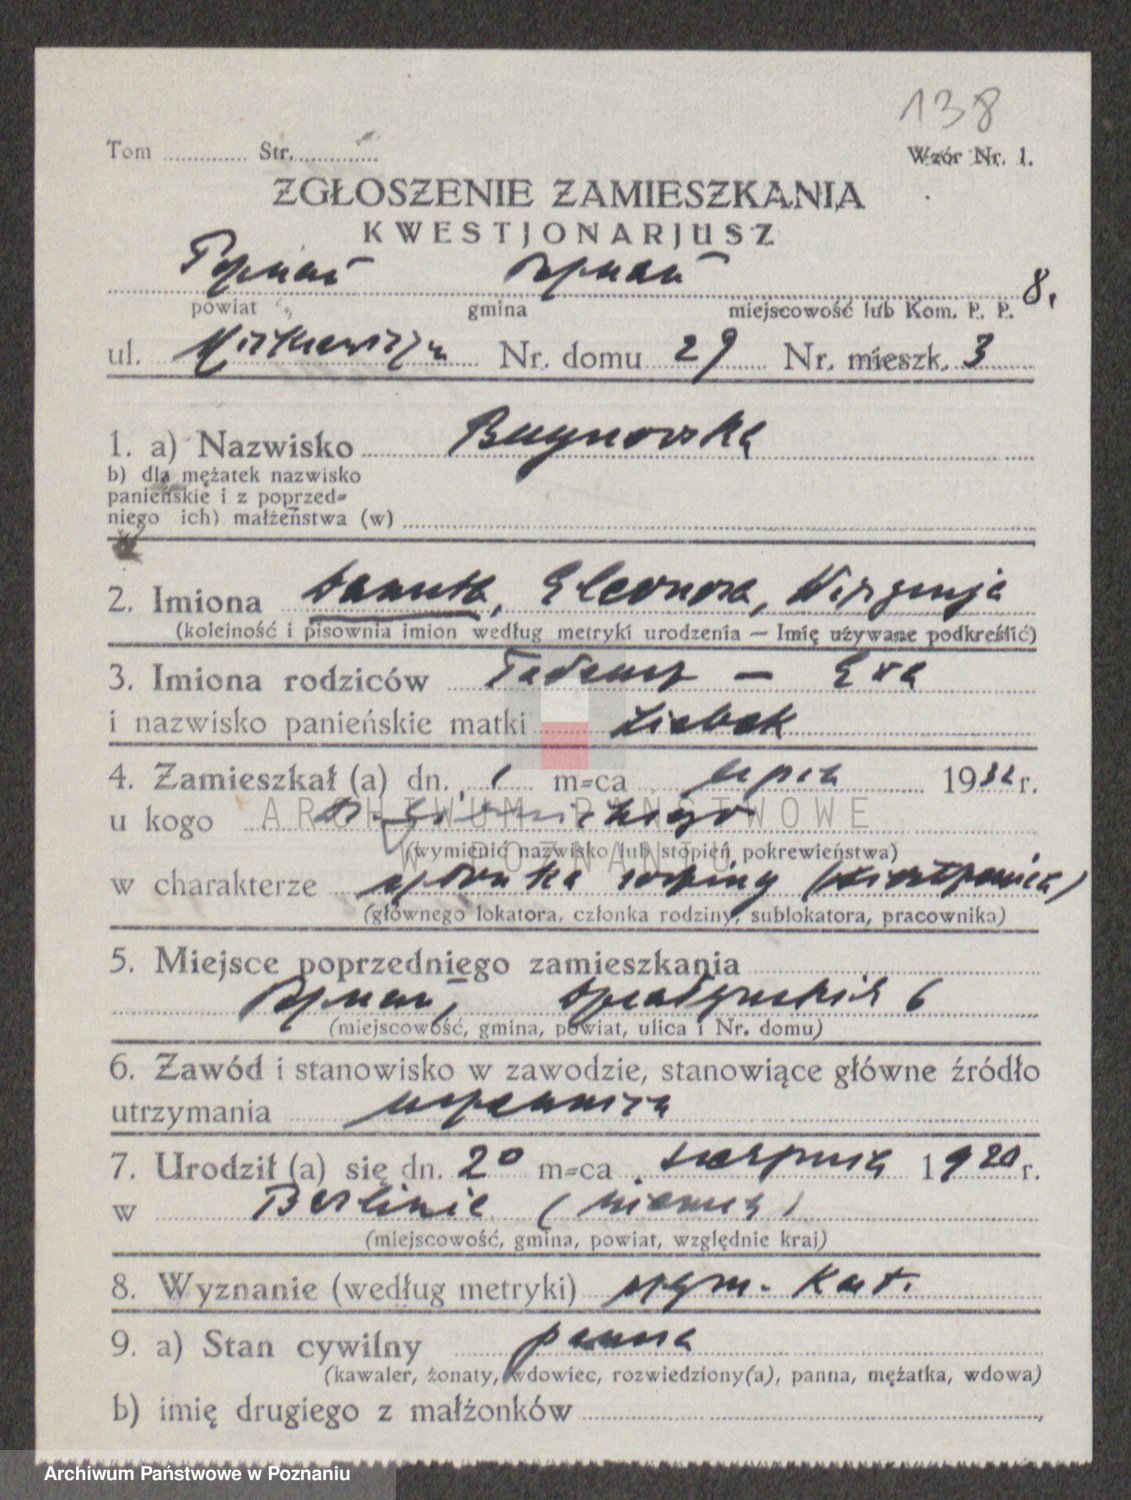 138
Tom ............ Str...............
Wzór Nr. 1.
ZGŁOSZENIE ZAMIESZKANIA
KWESTJONARJUSZ
Poznań Poznań 8.
powiat gmina miejscowość lub Kom. P. P.
ul. Mickiewicza Nr. domu 29 Nr. mieszk. 3
1. a) Nazwisko
b) dla mężatek nazwisko
panieńskie i z poprzed=
niego ich) małżeństwa (w)
2. Imiona Danuta, Eleonora, Wirginja
(kolejność i pisownia imion według metryki urodzenia — Imię używane podkreślić)
3. Imiona rodziców Tadeusz — Ewa
i nazwisko panieńskie matki
4. Zamieszkał (a) dn. 1 m=ca lipca 1932 r.
u kogo
(wymienić nazwisko lub stopień pokrewieństwa)
w charakterze członka rodziny (siostrzenica)
(głównego lokatora, członka rodziny, sublokatora, pracownika)
5. Miejsce poprzedniego zamieszkania
Poznań, Działyńskich 6
(miejscowość, gmina, powiat, ulica i Nr. domu)
6. Zawód i stanowisko w zawodzie, stanowiące główne źródło
utrzymania uczennica
7. Urodził (a) się dn. 20 m=ca sierpnia 1920 r.
w Berlinie (Niemcy)
(miejscowość, gmina, powiat, względnie kraj)
8. Wyznanie (według metryki) rzym. kat.
9. a) Stan cywilny panna
(kawaler, żonaty, wdowiec, rozwiedziony(a), panna, mężatka, wdowa)
b) imię drugiego z małżonków
ARCHIWUM PAŃSTWOWE
W POZNANIU
Archiwum Państwowe w Poznaniu